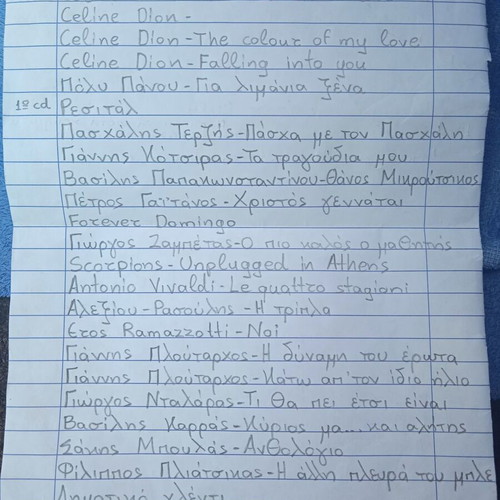 Celine Dion-
Celine Dion-The colour of my love
Celine Dion-Falling into you
Πόλυ Πάνου-Για λιμάνια ξένα
1º cd Ρεσιτάλ
Πασχάλης Τερζής-Πάσχα με τον Πασχάλη
Γιάννης Κότσιρας-Τα τραγούδια μου
Βασίλης Παπακωνσταντίνου-Θάνος Μικρούτσικος
Πέτρος Γαϊτάνος-Χριστός γεννάται
Forever Domingo
Γιώργος Ζαμπέτας-Ο πιο καλός ο μαθητής
Scorpions-Unplugged in Athens
Antonio Vivaldi-Le quattro stagioni
Αλεξίου-Ρασούλης-Η τρίπλα
Eros Ramazzotti-Noi
Γιάννης Πλούταρχος-Η δύναμη του έρωτα
Γιάννης Πλούταρχος-Κάτω απ' τον ίδιο ήλιο
Γιώργος Νταλάρας-Τι θα πει έτσι είναι
Βασίλης Καρράς-Κύριος μα... και αλήτης
Σάκης Μπουλάς-Ανθολόγιο
Φίλιππος Πλιάτσικας-Η άλλη πλευρά του μπλε
Δημοτικό γλέντι